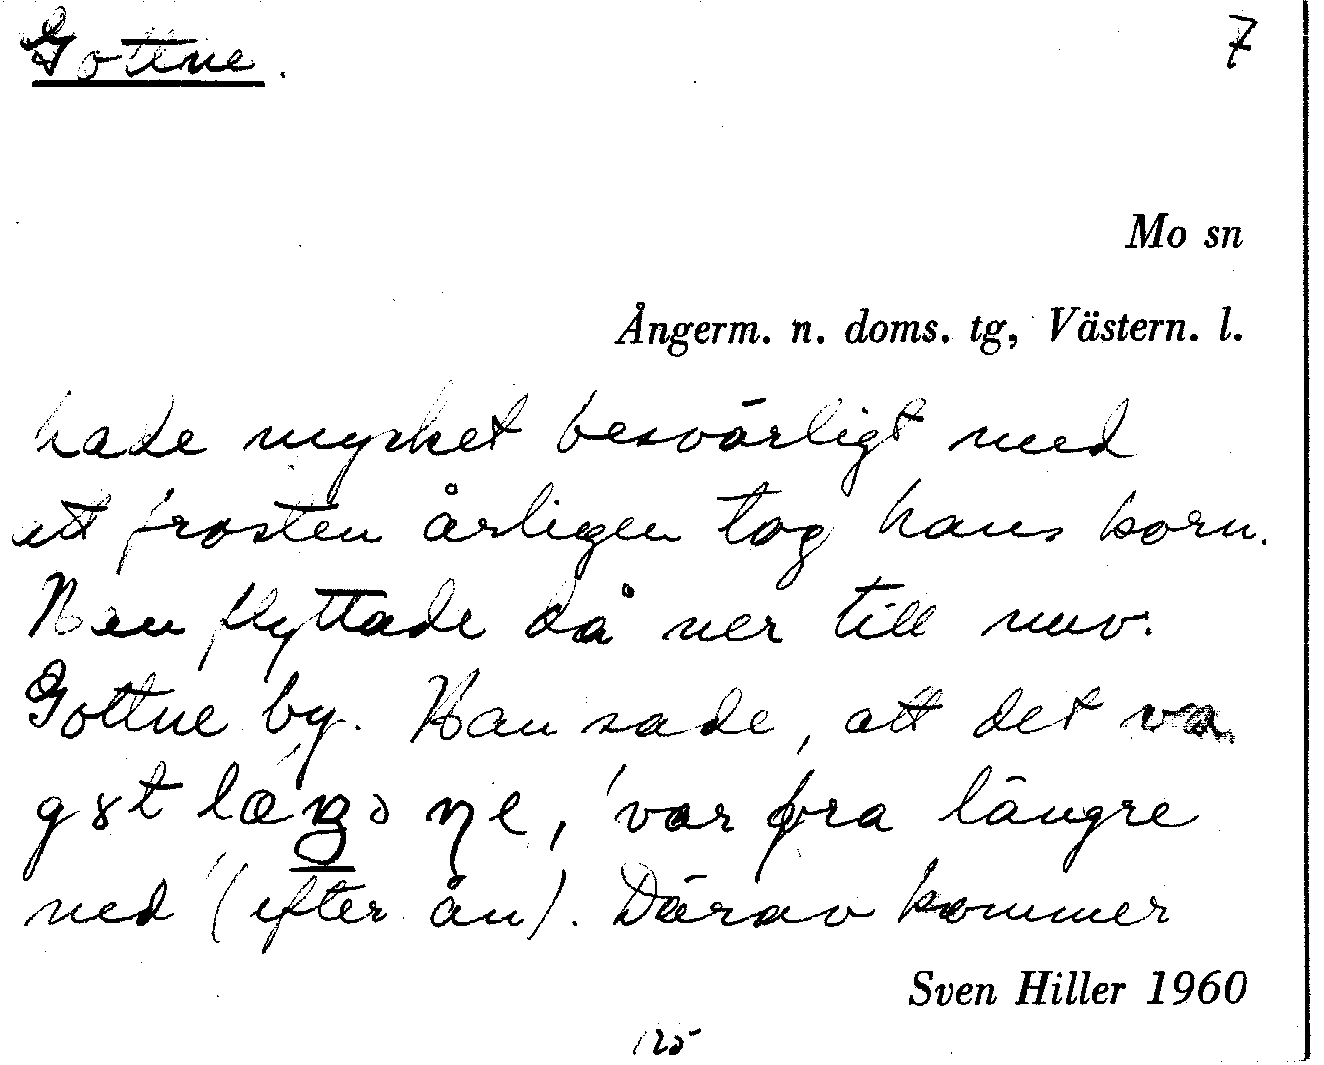 Gottne.
7
Mo sn
Ångerm. n. doms. tg, Västern. l.
hade mycket besvärligt med
att frosten årligen tog hans korn.
Han flyttade då ner till nuv.
Gottne by. Han sade, att det va
'var bra längre
ned (efter ån). Därav kommer
Sven Hiller 1960
125